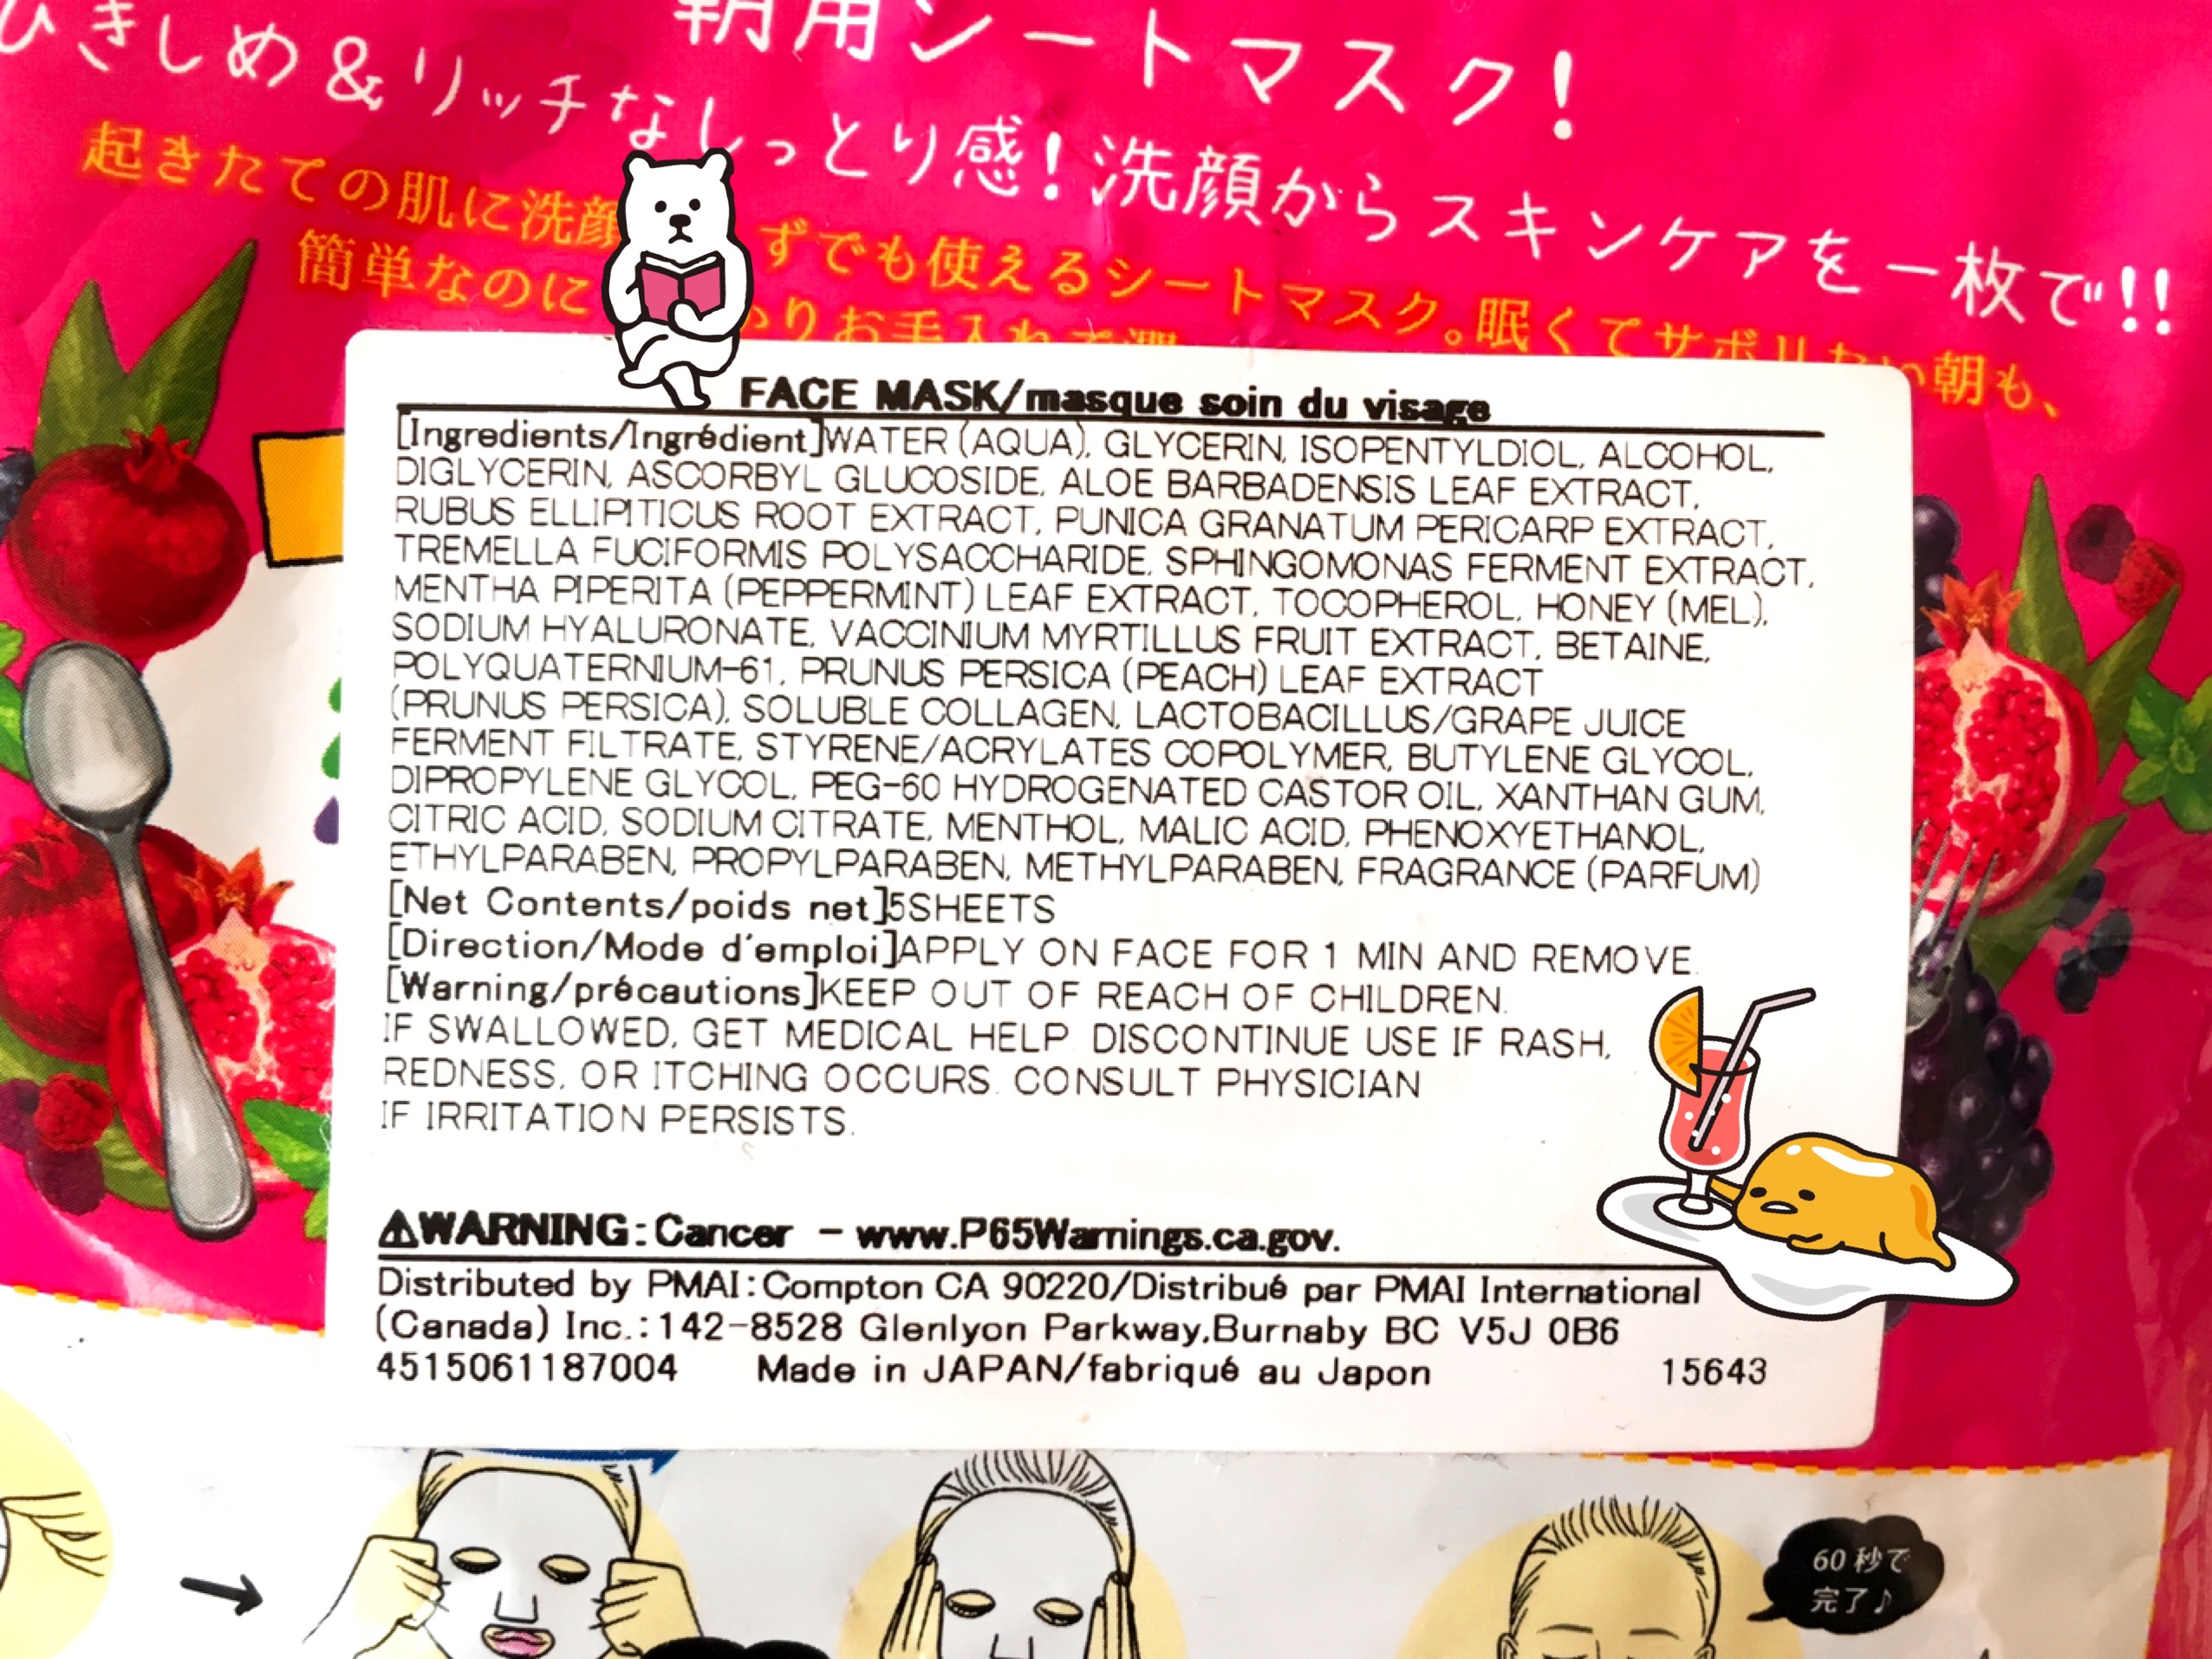 朝用シートマスク!
ひきしめ&リッチなしっとり感!洗顔からスキンケアを一枚で!!
起きたての肌に洗顔 ずでも使えるシートマスク。眠くてサボりたい朝も、
簡単なのに かりお手入れで潤
FACE MASK/masque soin du visage
[Ingredients/Ingrédient]WATER (AQUA), GLYCERIN, ISOPENTYLDIOL, ALCOHOL,
DIGLYCERIN, ASCORBYL GLUCOSIDE, ALOE BARBADENSIS LEAF EXTRACT,
RUBUS ELLIPITICUS ROOT EXTRACT, PUNICA GRANATUM PERICARP EXTRACT,
TREMELLA FUCIFORMIS POLYSACCHARIDE, SPHINGOMONAS FERMENT EXTRACT,
MENTHA PIPERITA (PEPPERMINT) LEAF EXTRACT, TOCOPHEROL, HONEY (MEL),
SODIUM HYALURONATE, VACCINIUM MYRTILLUS FRUIT EXTRACT, BETAINE,
POLYQUATERNIUM-61, PRUNUS PERSICA (PEACH) LEAF EXTRACT
(PRUNUS PERSICA), SOLUBLE COLLAGEN, LACTOBACILLUS/GRAPE JUICE
FERMENT FILTRATE, STYRENE/ACRYLATES COPOLYMER, BUTYLENE GLYCOL,
DIPROPYLENE GLYCOL, PEG-60 HYDROGENATED CASTOR OIL, XANTHAN GUM,
CITRIC ACID, SODIUM CITRATE, MENTHOL, MALIC ACID, PHENOXYETHANOL,
ETHYLPARABEN, PROPYLPARABEN, METHYLPARABEN, FRAGRANCE (PARFUM)
[Net Contents/poids net]5SHEETS
[Direction/Mode d'emploi]APPLY ON FACE FOR 1 MIN AND REMOVE.
[Warning/précautions]KEEP OUT OF REACH OF CHILDREN.
IF SWALLOWED, GET MEDICAL HELP. DISCONTINUE USE IF RASH,
REDNESS, OR ITCHING OCCURS. CONSULT PHYSICIAN
IF IRRITATION PERSISTS.
⚠WARNING:Cancer - www.P65Warnings.ca.gov.
Distributed by PMAI:Compton CA 90220/Distribué par PMAI International
(Canada) Inc.:142-8528 Glenlyon Parkway,Burnaby BC V5J 0B6
4515061187004 Made in JAPAN/fabriqué au Japon 15643
60秒で
完了♪